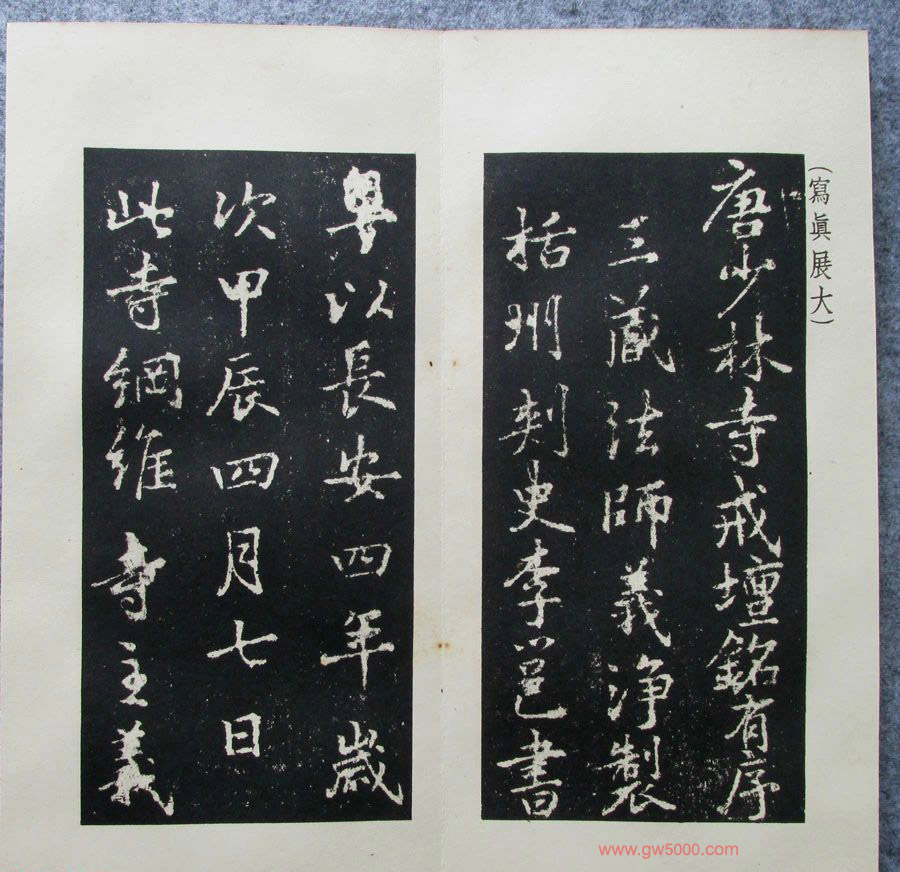 (寫眞展大)
唐少林寺戒壇銘有序
三蔵法師義浄製
括州刺史李邕書
粤以長安四年歲
次甲辰四月七日
此寺綱維寺主義
www.gw5000.com